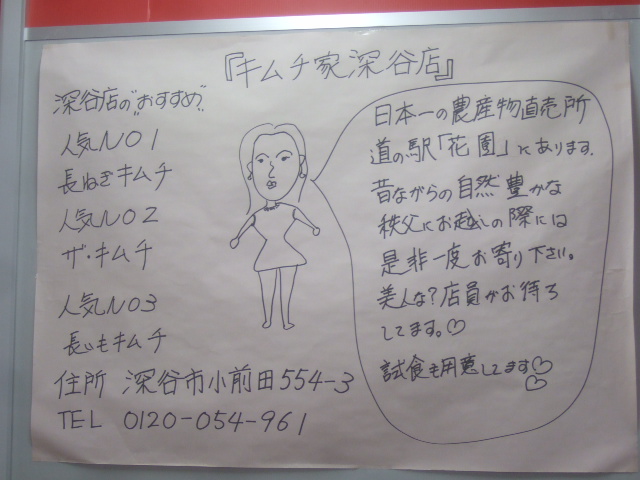 『キムチ家深谷店』
深谷店の"おすすめ"
人気NO1
長ねぎキムチ
人気NO2
ザ・キムチ
人気NO3
長いもキムチ
住所 深谷市小前田554-3
TEL 0120-054-961
日本一の農産物直売所
道の駅「花園」にあります.
昔ながらの自然豊かな
秩父にお越しの際には
是非一度お寄り下さい。
美人な?店員がお待ち
してます。♡
試食も用意してます♡
♡